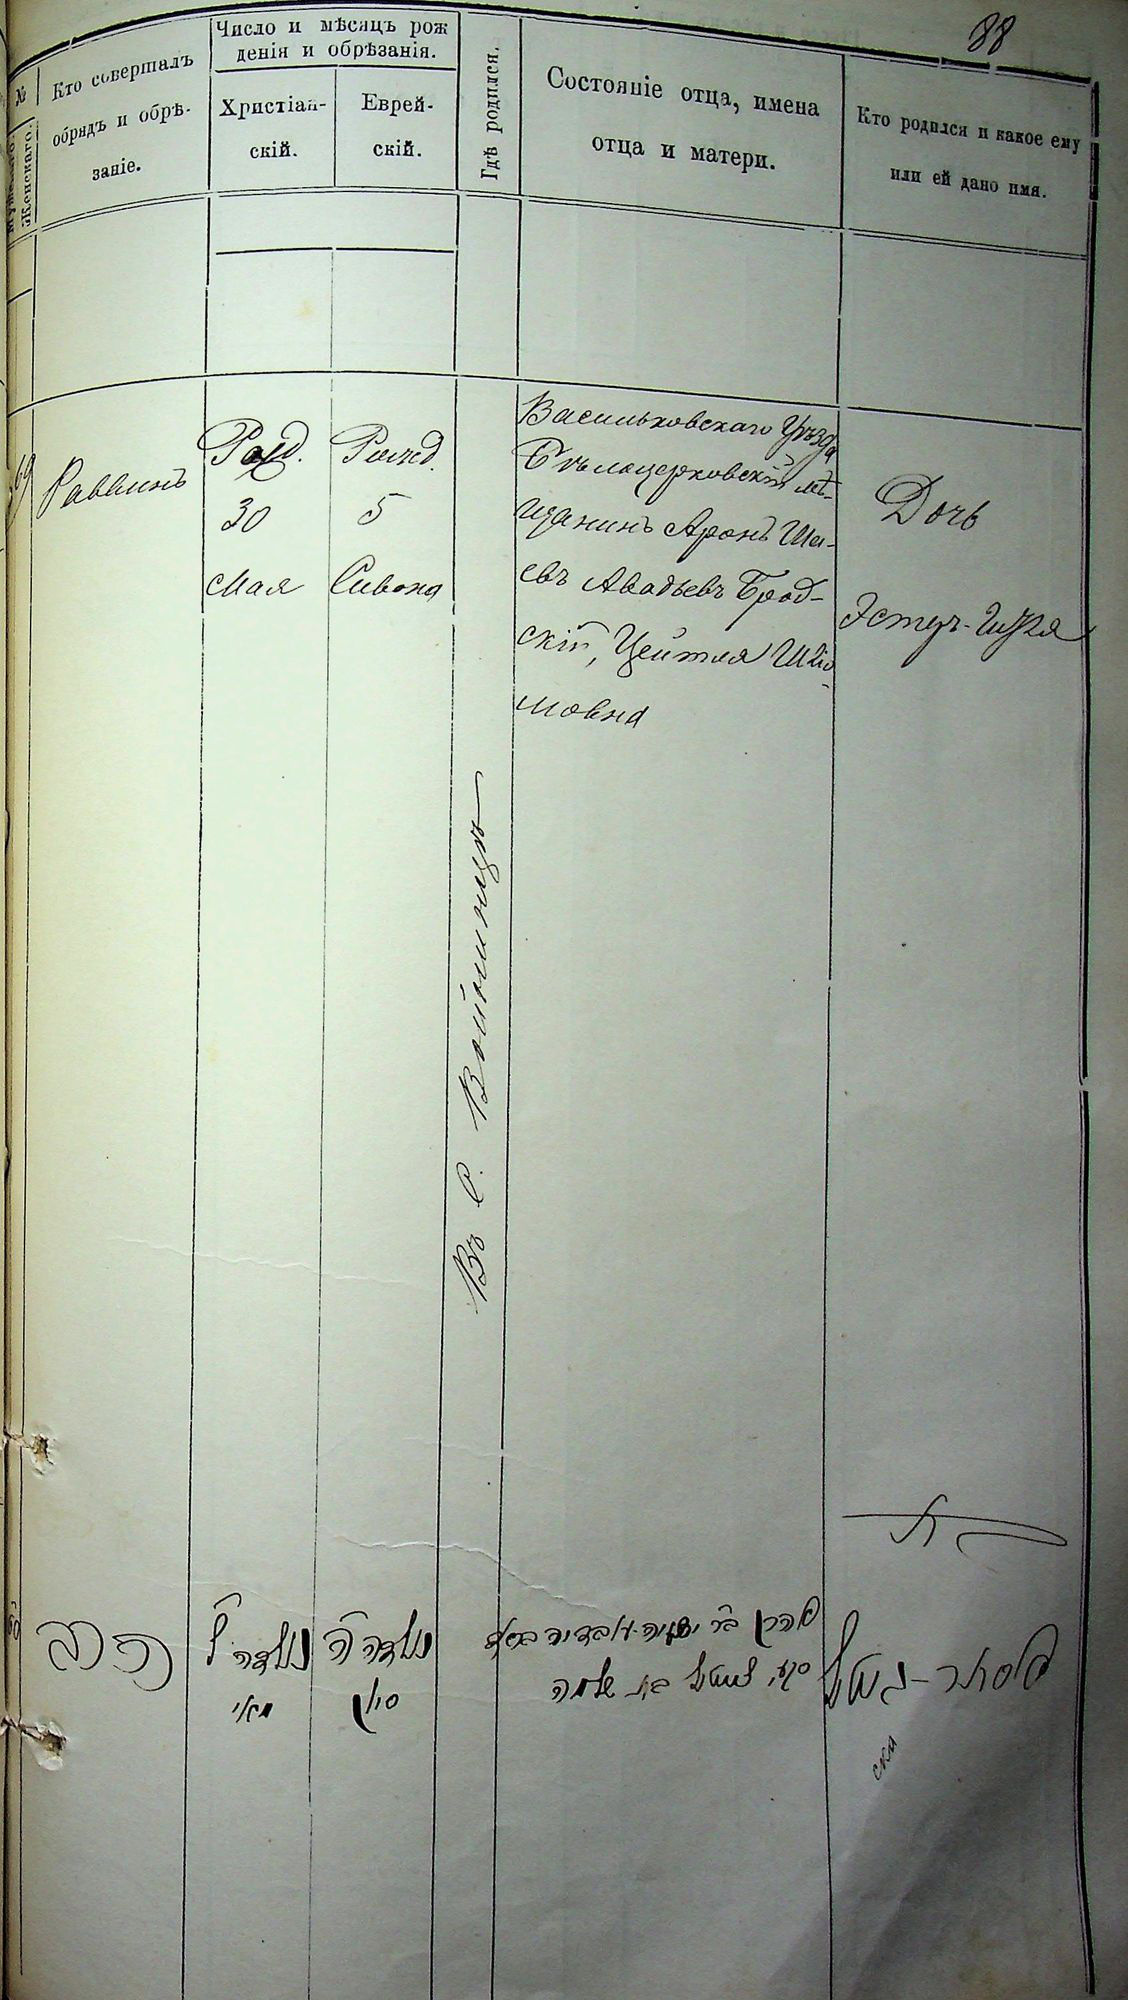 88
№
Мужскаго
Женскаго.
Кто совершалъ
обрядъ и обрѣ-
заніе.
Число и мѣсяцъ рож
денія и обрѣзанія.
Христіан-
скій.
Еврей-
скій.
Гдѣ родился.
Состояніе отца, имена
отца и матери.
Кто родился и какое ему
или ей дано имя.
69
Раввинъ
Рожд.
30
Мая
Рожд.
5
Сивона
Въ с. Войтницѣ
Васильковскаго Уѣзда
Бѣлоцерковскій мѣ-
щанинъ Аронъ Ша-
евъ Авадьевъ Брод-
скій, Цейтля Шлио-
мовна
Дочь
Эстеръ-
הרב
נולדה ל
מאי
נולדה ה
סיון
אהרן בר ישעיה עובדיה
בת שלמה
אסתר-